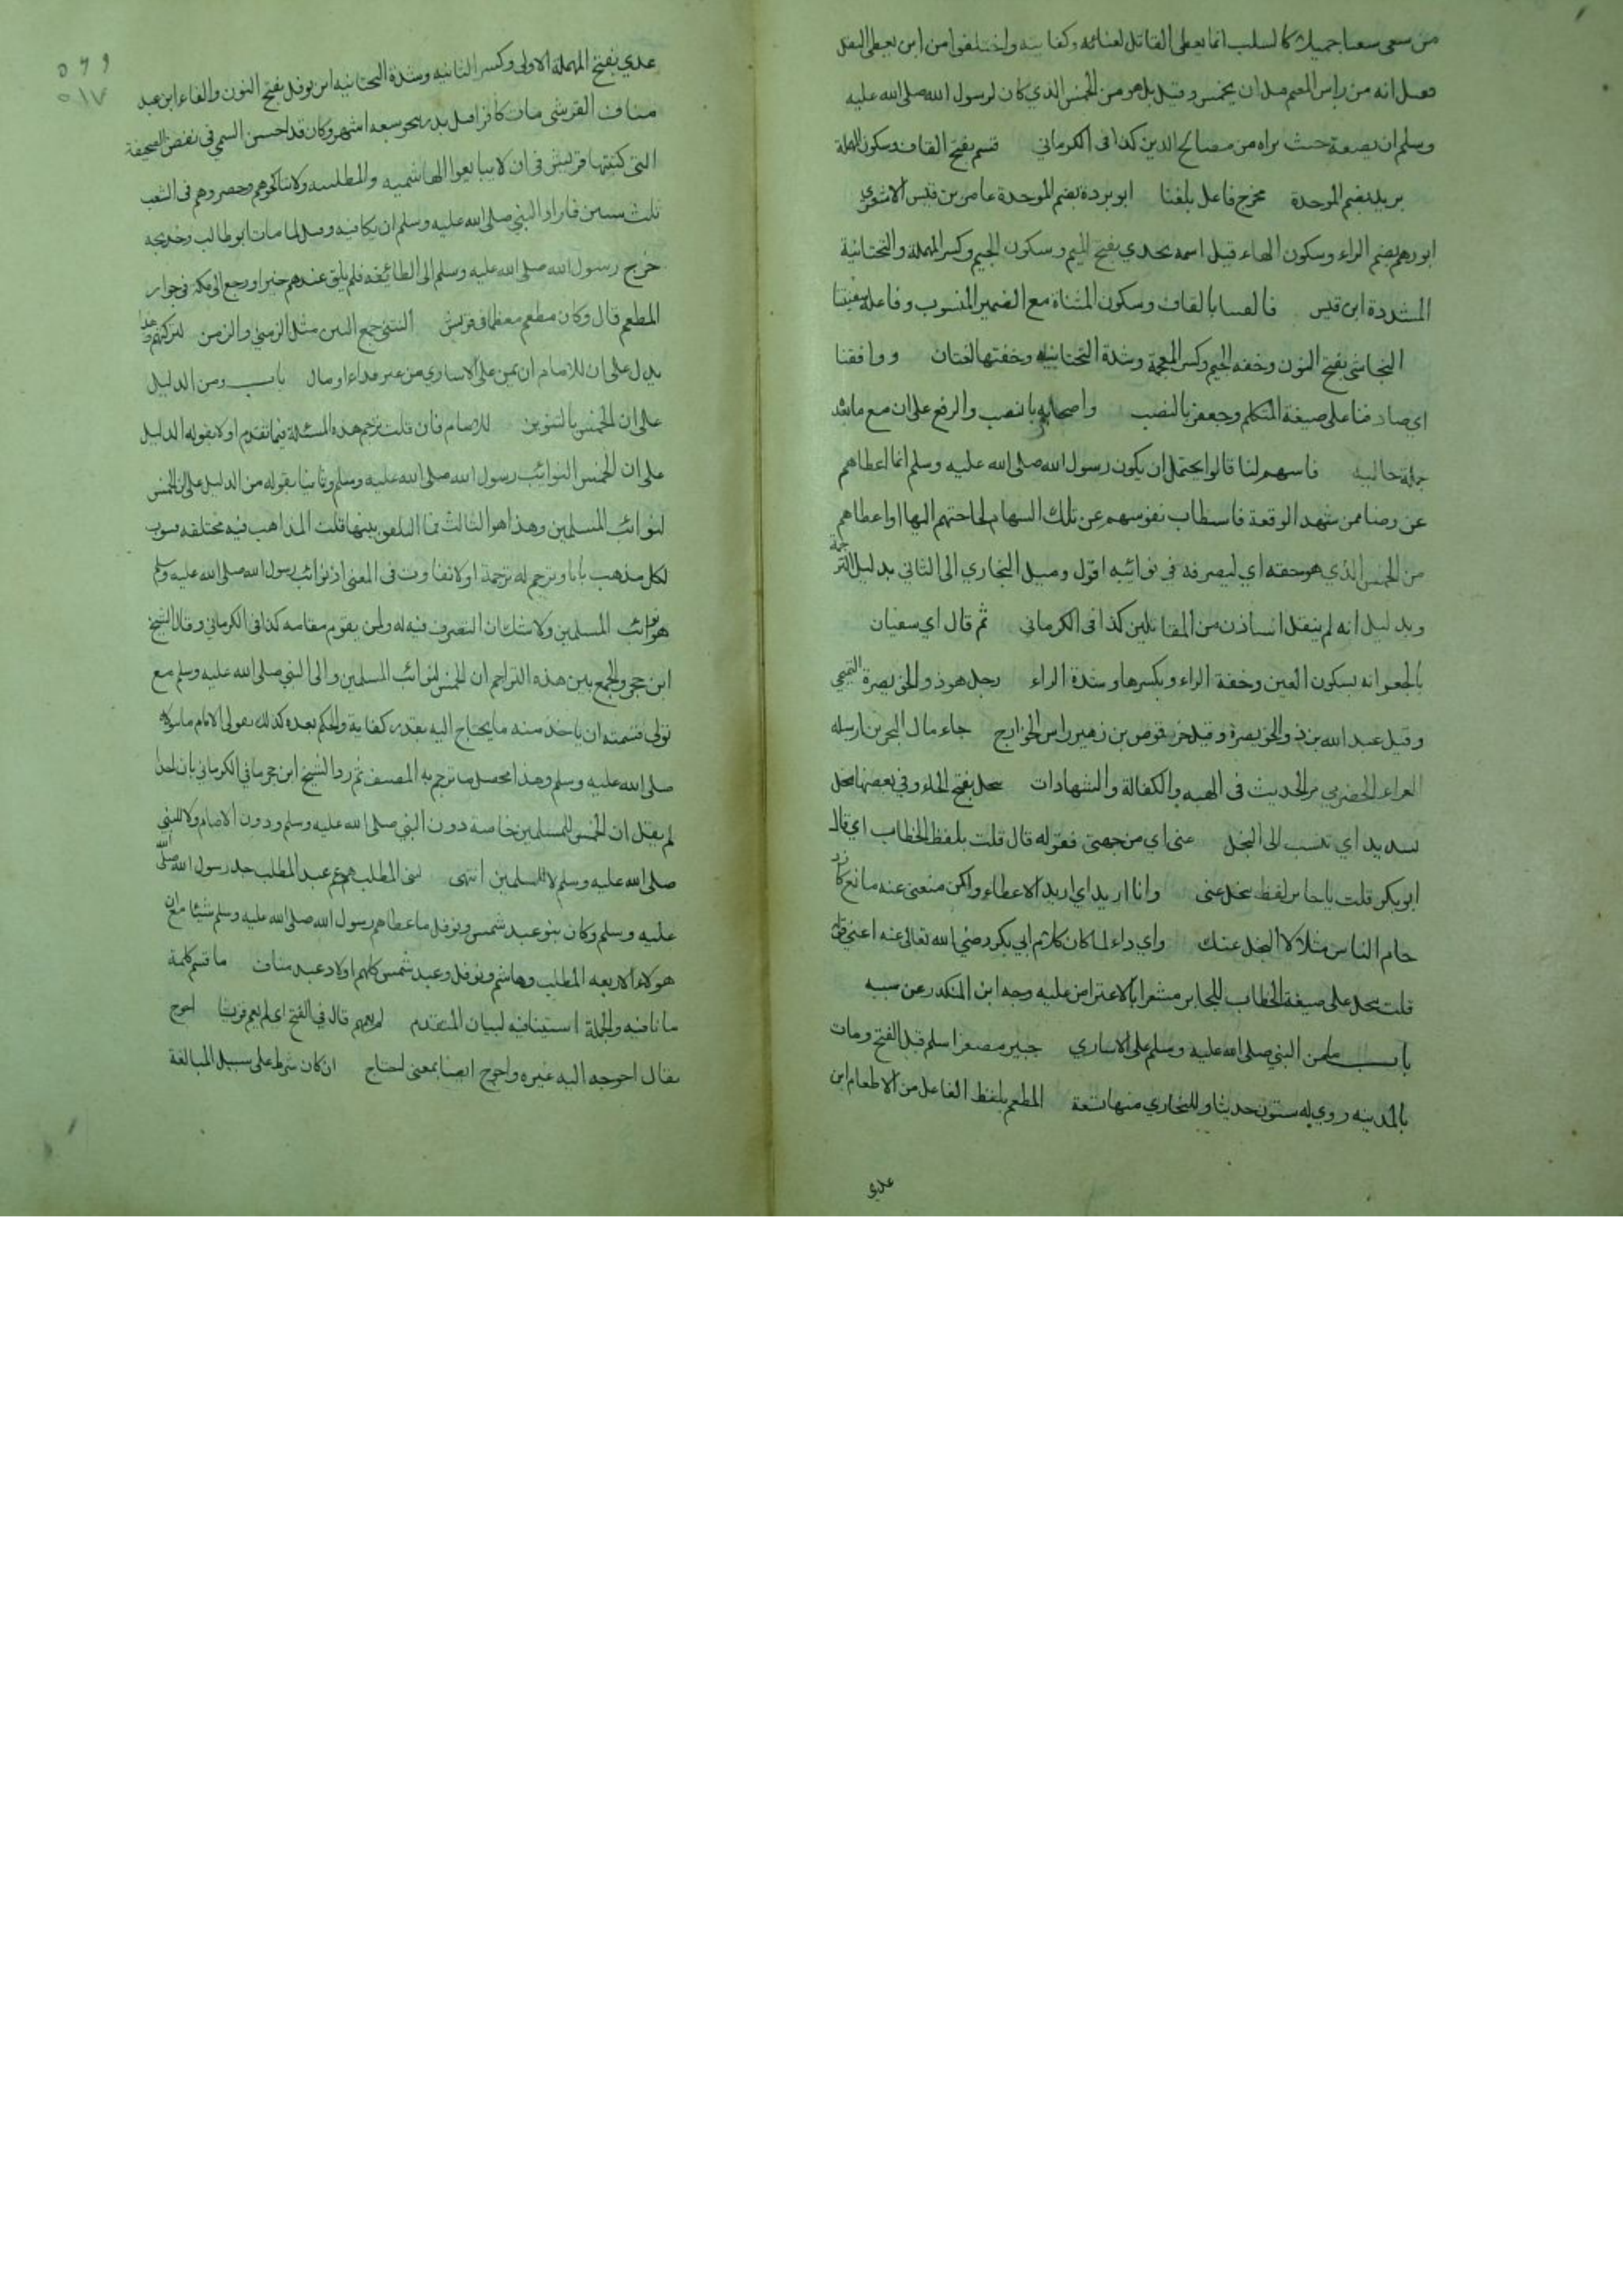 من سعى سعيا جميلا كالسلب انما يعطى القاتل لعنائه وكفايته واختلفوا من اين يعطى النفل
فعيل انه من راس المغنم قبل ان يخمس وقيل بل هو من الخمس الذي كان لرسول الله صلى الله عليه
وسلم ان يضعه حيث يراه من مصالح الدين كذا في الكرماني قسم بفتح القاف وسكون المهملة
بريد بضم الموحدة مخرج فاعل بلغنا ابو بردة بضم الموحدة عامر بن قيس الاشعري
ابورهم بضم الراء وسكون الهاء قيل اسمه مجدي بفتح الميم وسكون الجيم وكسر المهملة والتحتانية
المشددة ابن قيس فالفتنا بالقاف وسكون المثناة مع الضمير المنسوب وفاعله سفينتنا
النجاشي بفتح النون وخفة الجيم وكسر المعجمة وشدة التحتانية وخفتها لغتان ووافقنا
اي صادفنا على صيغة المتكلم وجعفر بالنصب واصحابه بالنصب والرفع على ان مع ما بعد
جملة حالية فاسهم لنا قالوا يحتمل ان يكون رسول الله صلى الله عليه وسلم انما اعطاهم
عن رضا ممن شهد الوقعة فاستطاب نفوسهم عن تلك السهام لحاجتهم اليها او اعطاهم
من الخمس الذي هو حقه اي ليصرفه في نوائبه اقول وميل البخاري الى الثاني بدليل الترجمة
وبدليل انه لم ينقل استاذن من المقاتلين كذا في الكرماني ثم قال اي سفيان
بالجعرانه بسكون العين وخفة الراء وبكسرها وشدة الراء رجل هو ذو الخويصرة التميمي
وقيل عبد الله بن ذو الخويصرة وقيل حرقوص بن زهير راس الخوارج جاء مال البحرين ارسله
العلاء الحضرمي مر الحديث في الهبه والكفالة والشهادات تبخل بفتح الخاء وفي بعضها تبخل
بتشديد اي تنسب الى البخل عني اي من جهتي فقوله قال قلت بلفظ الخطاب اي قال
ابو بكر قلت يا جابر لفظ تبخل عني وانا اريد اي اريد الاعطاء ولكن منعني عنه مانع كازد
حام الناس مثلا لا البخل عنك واي داء لما كان كلام ابي بكر رضي الله تعالى عنه اعني قوله
قلت تبخل على صيغة الخطاب للجابر مشعرا بالاعتراض عليه وجه ابن المنكدر عن سببه
باب ما من النبي صلى الله عليه وسلم على الاسارى جبير مصغرا اسلم قبل الفتح ومات
بالمدينه روي له ستون حديثا وللبخاري منها تسعة المطعم بلفظ الفاعل من الاطعام ابن
عدي
عدي بفتح المهملة الاولى وكسر الثانيه وشدة التحتانيه ابن نوفل بفتح النون والفاء ابن عبد
مناف القرشي مات كافرا قبل بدر بنحو سبعه اشهر وكان قد احسن السعي في نقض الصحيفة
التي كتبتها قريش في ان لا يبايعوا الهاشميه والمطلبيه ولا يناكحوهم وحصروهم في الشعب
ثلث سنين فاراد النبي صلى الله عليه وسلم ان يكافيه وقيل لما مات ابو طالب وخديجه
خرج رسول الله صلى الله عليه وسلم الى الطائف فلم يلق عندهم خيرا ورجع الى مكة في جوار
المطعم قال وكان مطعم معظما في قريش النتنى جمع النتن مثل الزمنى والزمن لتركتهم هذا
يدل على ان للامام ان يمن على الاسارى من غير فداء او مال باب ومن الدليل
على ان الخمس بالتنوين للامام فان قلت ترجم هذه المسئلة فيما تقدم اولا بقوله الدليل
على ان الخمس لنوائب رسول الله صلى الله عليه وسلم وثانيا بقوله من الدليل على ان الخمس
لنوائب المسلمين وهذا هو الثالث فما التلفيق بينها قلت المذاهب فيه مختلفه فبوب
لكل مذهب بابا وترجم له ترجمة اولا تفاوت في المعنى اذ نوائب رسول الله صلى الله عليه وسلم
هو نوائب المسلمين ولا شك ان التصرف فيه له ولمن يقوم مقامه كذا في الكرماني وقال الشيخ
ابن حجر والجمع بين هذه التراجم ان الخمس لنوائب المسلمين والى النبي صلى الله عليه وسلم مع
تولى قسمته ان ياخذ منه ما يحتاج اليه بقدر كفايته والحكم بعده كذلك يتولى الامام ما يتولاه
صلى الله عليه وسلم وهذا محصل ما ترجم به المصنف ثم رد الشيخ ابن حجر ما في الكرماني بان احدا
لم يقل ان الخمس للمسلمين خاصة دون النبي صلى الله عليه وسلم ودون الامام ولا للنبي
صلى الله عليه وسلم لا للمسلمين انتهى بني المطلب هو عم عبد المطلب جد رسول الله صلى الله
عليه وسلم وكان بنو عبد شمس ونوفل ما عطاهم رسول الله صلى الله عليه وسلم شيئا مع ان
هولاء الاربعه المطلب وهاشم ونوفل وعبد شمس كلهم اولاد عبد مناف ما قسم كلمة
ما نافيه والجملة استينافيه لبيان المتقدم لم يعمهم قال في الفتح اي لم يعم قريشا احوج
يقال احوجه اليه غيره واحوج ايضا بمعنى احتاج ان كان شرط على سبيل المبالغة